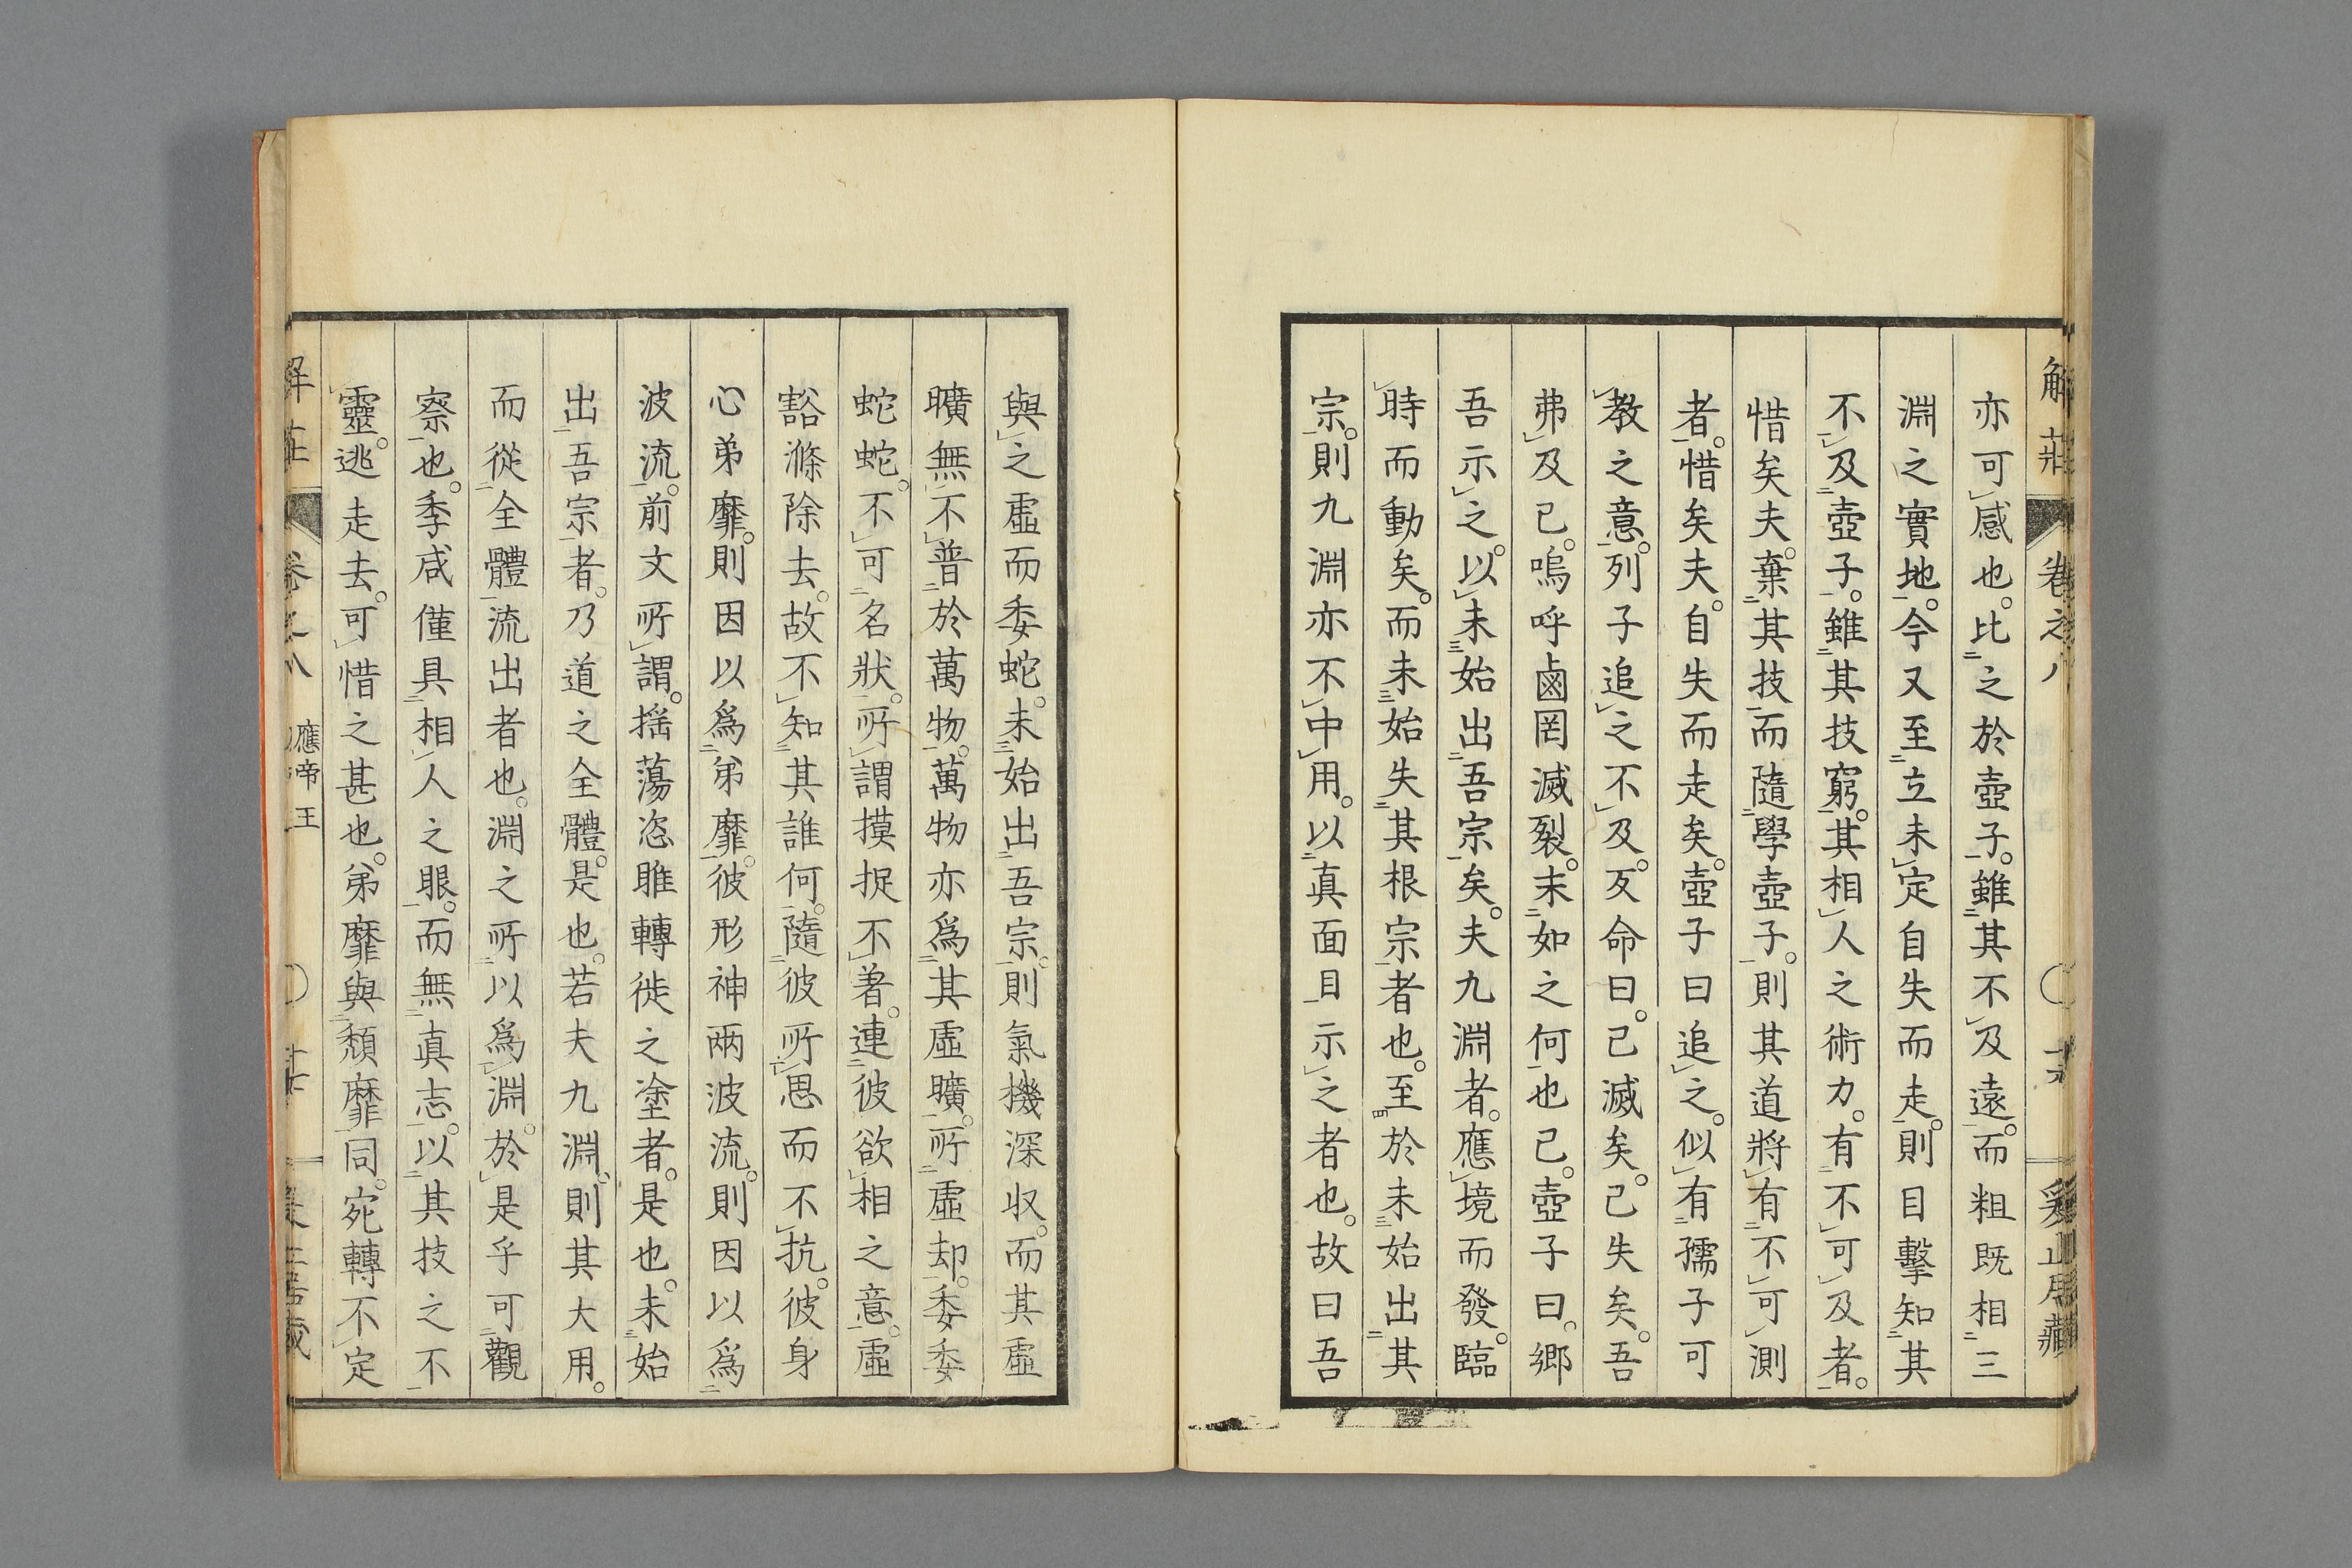 解莊 卷之八
亦可感也。比之於壺子。雖其不及遠。而粗既相三
淵之實地。今又至立未定自失而走。則目擊知其
不及壺子。雖其技窮。其相人之術力。有不可及者。
惜矣夫。棄其技而隨學壺子。則其道將有不可測
者。惜矣夫。自失而走矣。壺子曰追之。似有孺子可
教之意。列子追之不及。反命曰。已滅矣。已失矣。吾
弗及已。嗚呼鹵罔滅裂。末如之何也已。壺子曰。鄉
吾示之。以未始出吾宗矣。夫九淵者。應境而發。臨
時而動矣。而未始失其根宗者也。至於未始出其
宗。則九淵亦不中用。以真面目示之者也。故曰吾
與之虛而委蛇。未始出吾宗。則氣機深収。而其虛
曠無不普於萬物。萬物亦爲其虛曠。所虛却。委委
蛇蛇。不可名狀。所謂摸捉不著。連彼欲相之意。虛
豁滌除去。故不知其誰何。隨彼所思而不抗。彼身
心弟靡。則因以爲弟靡。彼形神兩波流。則因以爲
波流。前文所謂。搖蕩恣睢轉徙之塗者。是也。未始
出吾宗者。乃道之全體。是也。若夫九淵。則其大用。
而從全體流出者也。淵之所以爲淵。於是乎可觀
察也。季咸僅具相人之眼。而無真志。以其技之不
靈。逃走去。可惜之甚也。弟靡與頽靡同。宛轉不定
解莊 卷之八 應帝王